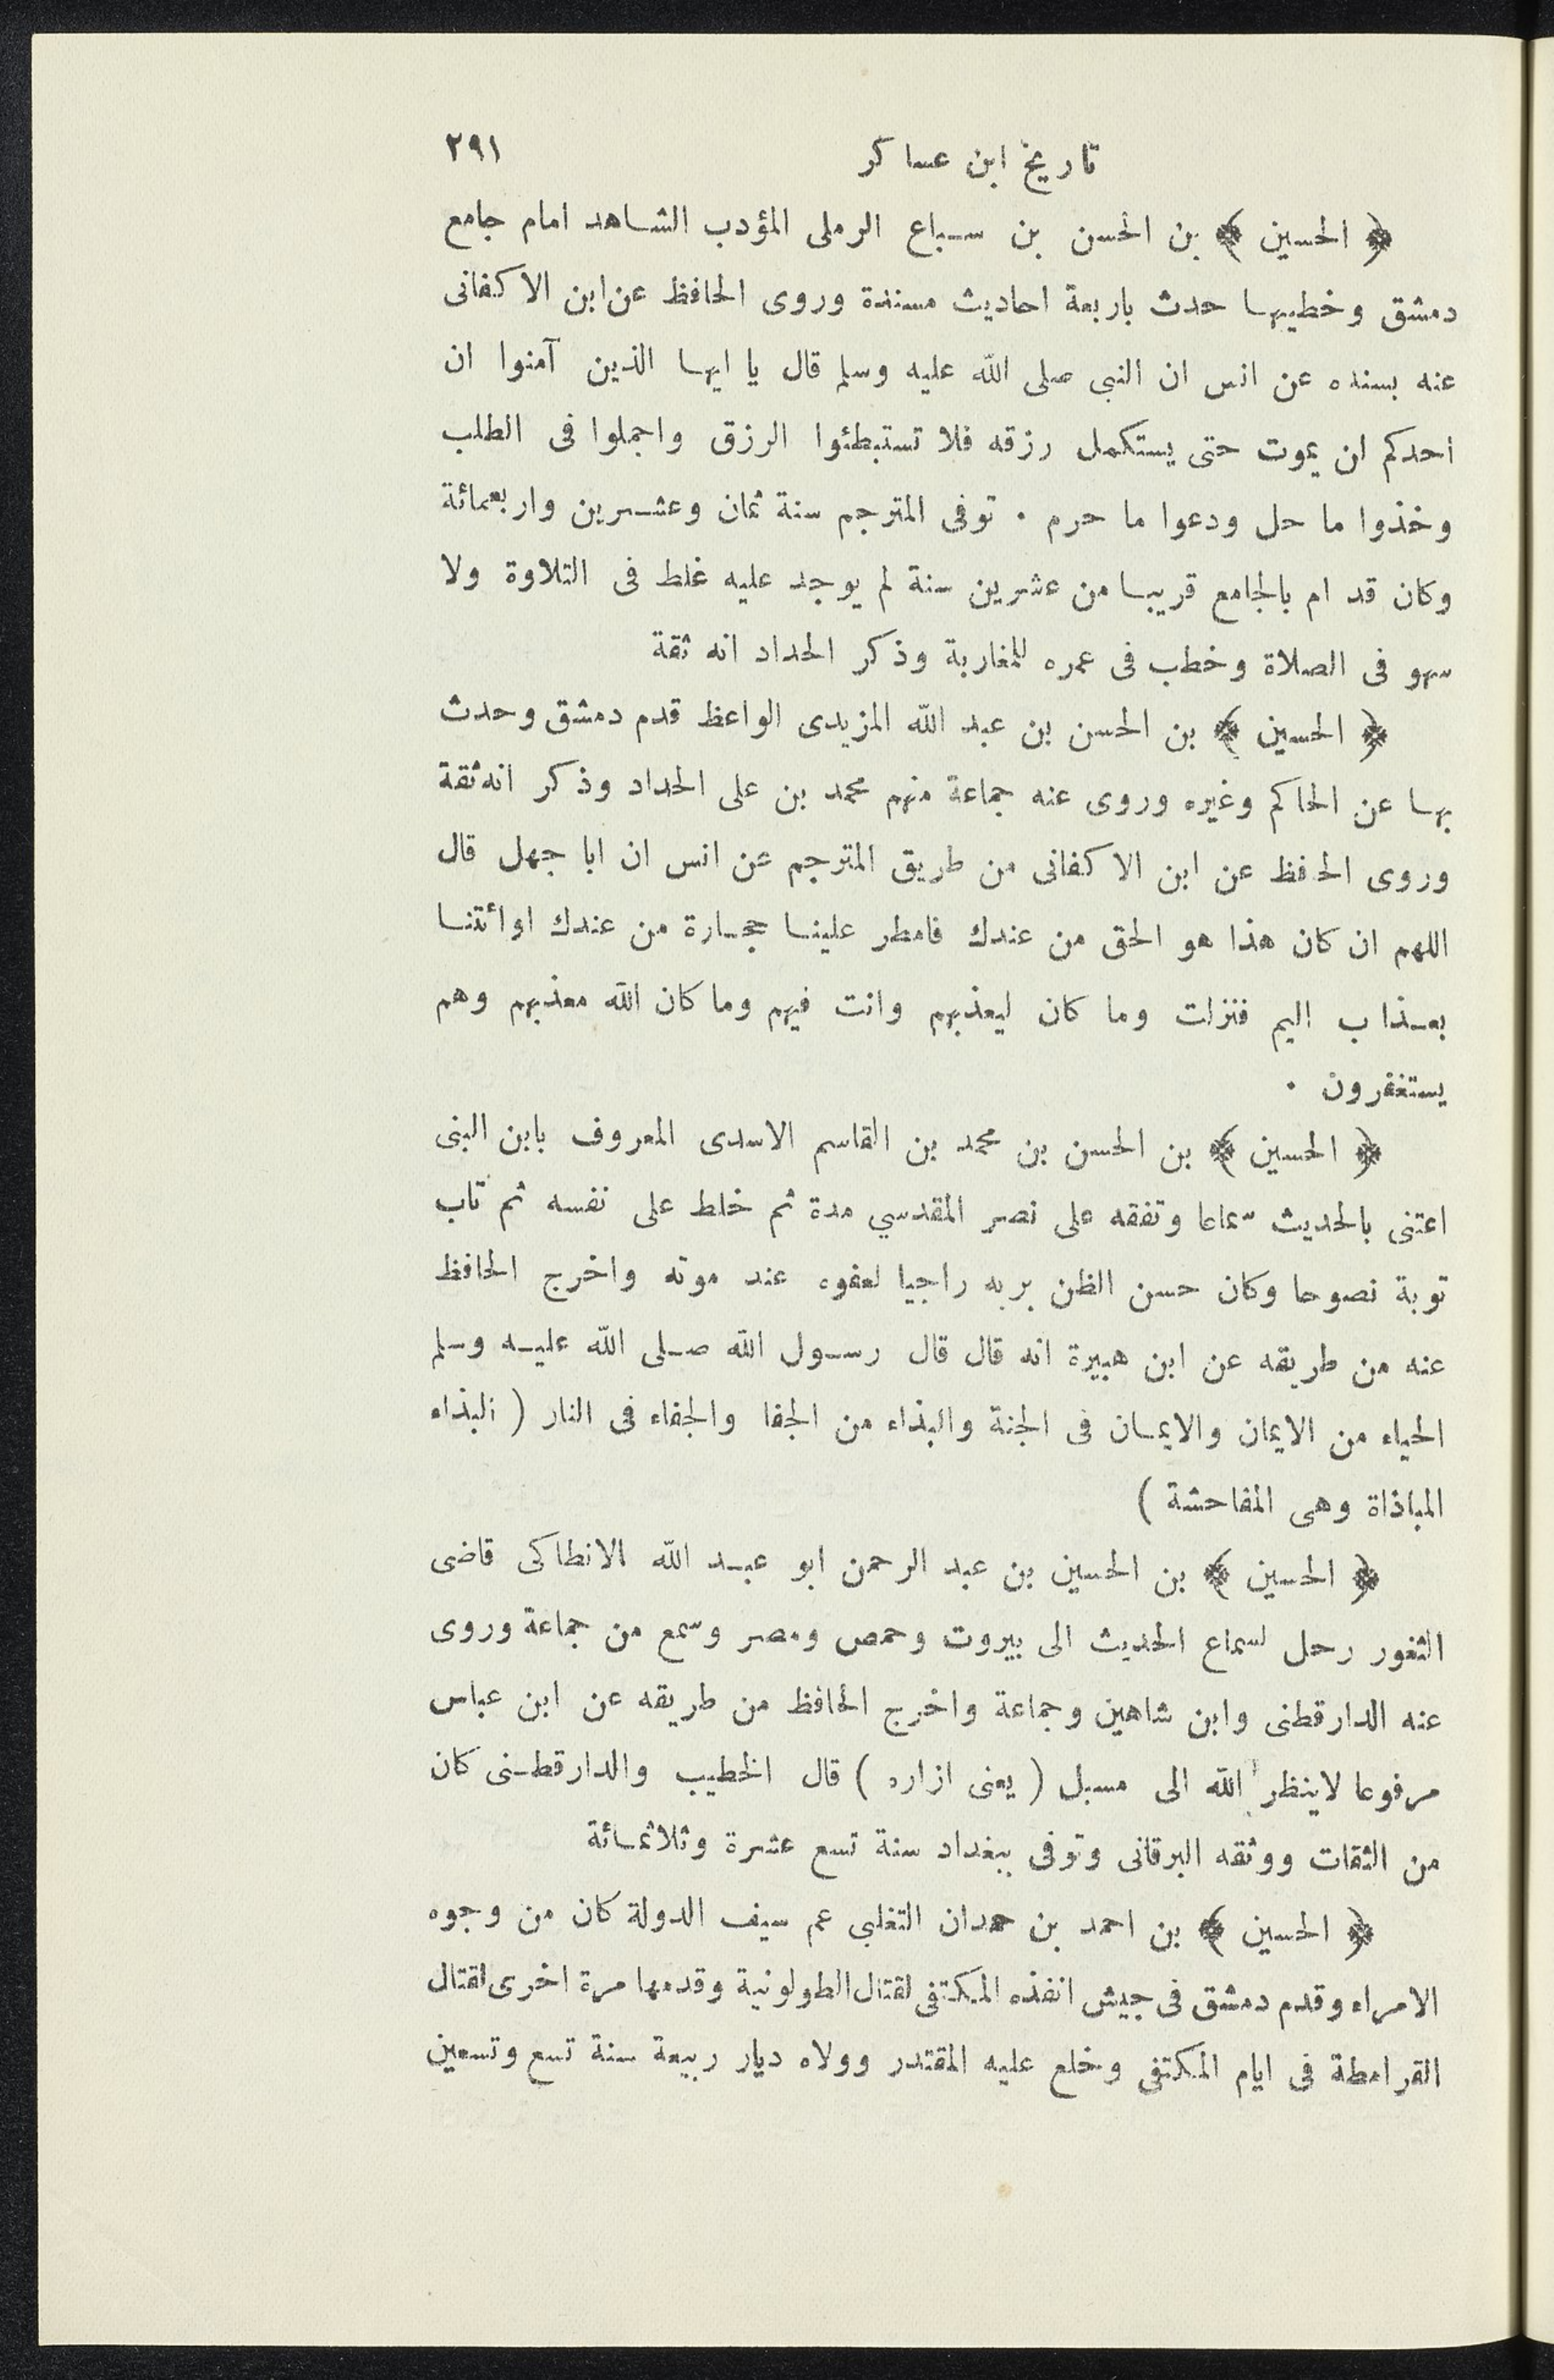 تاريخ ابن عساكر
٢٩١
﴿ الحسين ﴾ بن الحسن بن سباع الرملى المؤدب الشاهد امام جامع
دمشق وخطيبها حدث باربعة احاديث مسندة وروى الحافظ عن ابن الاكفانى
عنه بسنده عن انس ان النبى صلى الله عليه وسلم قال يا ايها الذين آمنوا ان
احدكم ان يموت حتى يستكمل رزقه فلا تستبطئوا الرزق واجملوا فى الطلب
وخذوا ما حل ودعوا ما حرم ٠ توفى المترجم سنة ثمان وعشرين واربعمائة
وكان قد ام بالجامع قريبا من عشرين سنة لم يوجد عليه غلط فى التلاوة ولا
سهو فى الصلاة وخطب فى عمره للمغاربة وذكر الحداد انه ثقة
﴿ الحسين ﴾ بن الحسن بن عبد الله المزيدى الواعظ قدم دمشق وحدث
بها عن الحاكم وغيره وروى عنه جماعة منهم محمد بن على الحداد وذكر انه ثقة
وروى الحافظ عن ابن الاكفانى من طريق المترجم عن انس ان ابا جهل قال
اللهم ان كان هذا هو الحق من عندك فامطر علينا حجارة من عندك اوائتنا
بعذاب اليم فنزلت وما كان ليعذبهم وانت فيهم وما كان الله معذبهم وهم
يستغفرون ٠
﴿ الحسين ﴾ بن الحسن بن محمد بن القاسم الاسدى المعروف بابن البنى
اعتنى بالحديث سماعا وتفقه على نصر المقدسي مدة ثم خلط على نفسه ثم تاب
توبة نصوحا وكان حسن الظن بربه راجيا لعفوه عند موته واخرج الحافظ
عنه من طريقه عن ابن هبيرة انه قال قال رسول الله صلى الله عليه وسلم
الحياء من الايمان والايمان فى الجنة والبذاء من الجفا والجفاء فى النار ( البذاء
المباذاة وهى المفاحشة )
﴿ الحسين ﴾ بن الحسين بن عبد الرحمن ابو عبد الله الانطاكى قاضى
الثغور رحل لسماع الحديث الى بيروت وحمص ومصر وسمع من جماعة وروى
عنه الدارقطنى وابن شاهين وجماعة واخرج الحافظ من طريقه عن ابن عباس
مرفوعا لاينظر الله الى مسبل ( يعنى ازاره ) قال الخطيب والدارقطنى كان
من الثقات ووثقه البرقانى وتوفى ببغداد سنة تسع عشرة وثلاثمائة
﴿ الحسين ﴾ بن احمد بن حمدان التغلبي عم سيف الدولة كان من وجوه
الامراء وقدم دمشق فى جيش انفذه المكتفى لقتال الطولونية وقدمها مرة اخرى لقتال
القرامطة فى ايام المكتفى وخلع عليه المقتدر وولاه ديار ربيعة سنة تسع وتسعين